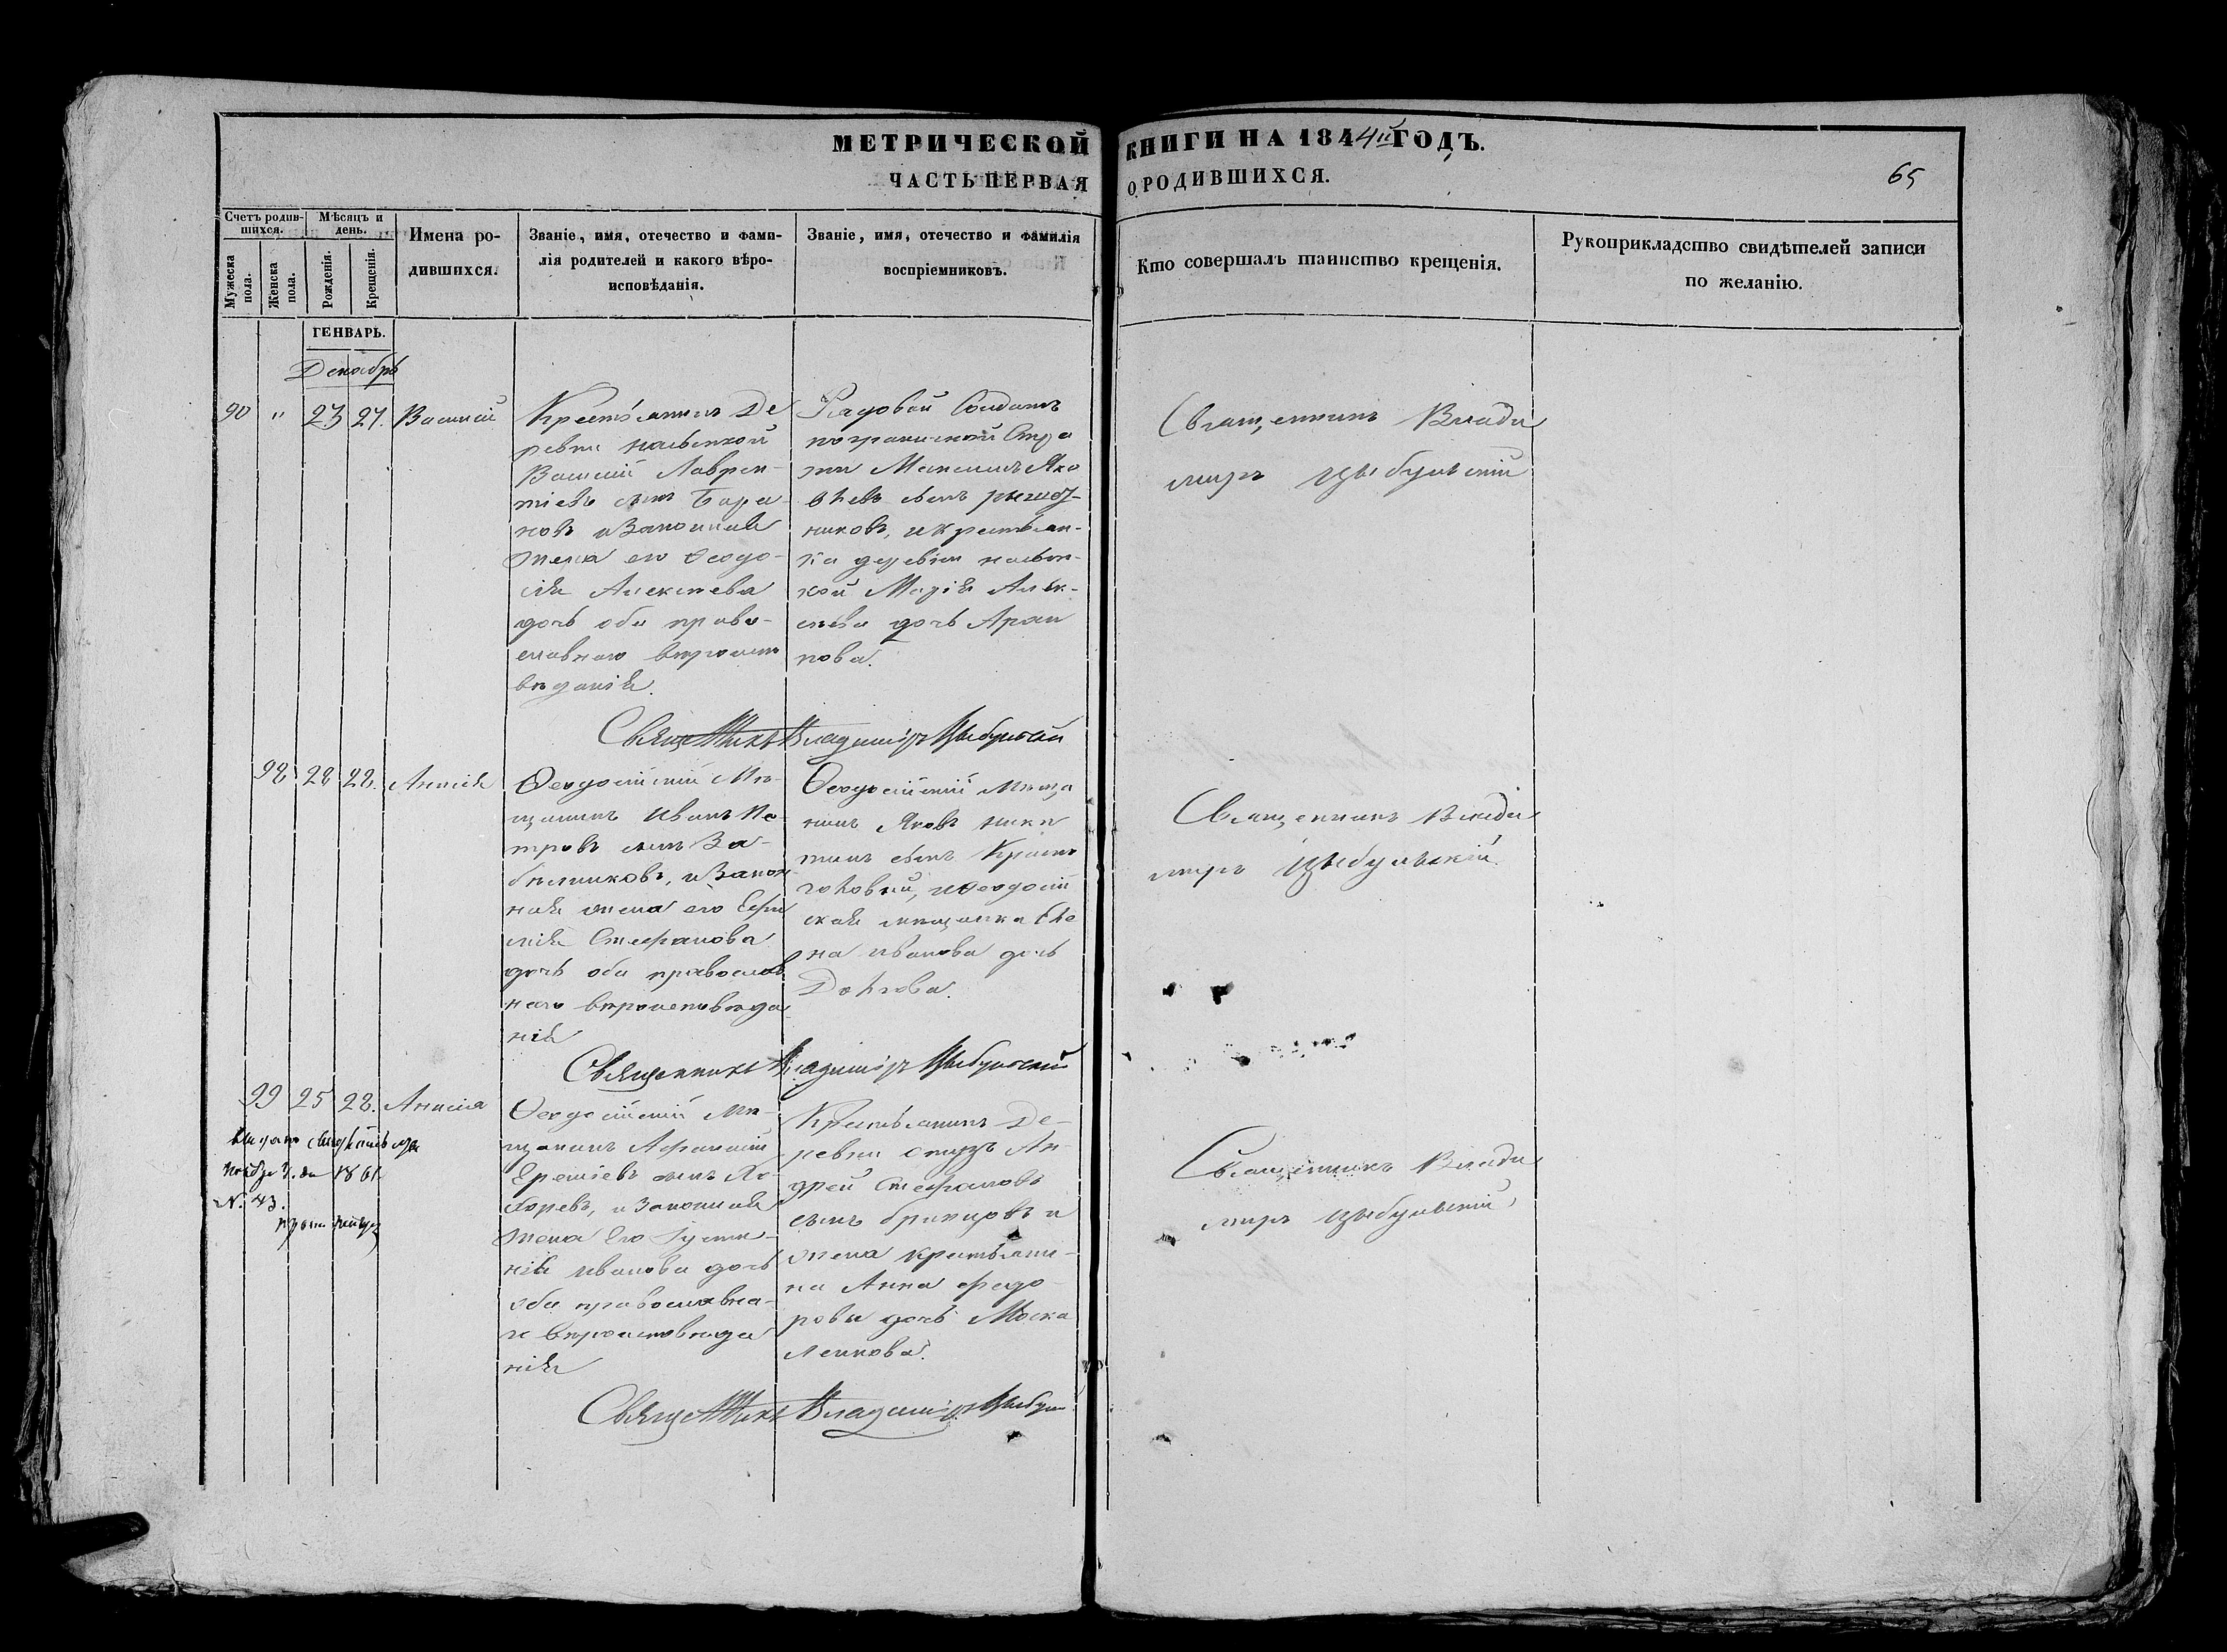 МЕТРИЧЕСКОЙ КНИГИ НА 1844й ГОДЪ.
ЧАСТЬ ПЕРВАЯ О РОДИВШИХСЯ.
65
Счетъ родив-
шихся.
Мужеска
пола.
Женска
пола.
Мѣсяцъ и
день.
Рожденія.
Крещенія.
Имена ро-
дившихся.
Званіе, имя, отечество и фами-
лія родителей и какого вѣро-
исповѣданія.
Званіе, имя, отечество и фамилія
воспріемниковъ.
Кто совершалъ таинство крещенія.
Рукоприкладство свидѣтелей записи
по желанію.
ГЕНВАРЬ.
Декабрь
90 " 23 27. Василій
Крестьянинъ де
ревни
Василій Лаврен-
тіевъ сынъ Бара-
новъ и законная
жена его Ѳеодо-
сія Алексѣева
дочь оба право-
славнаго вѣроиспо
вѣданія.
Рядовой Солдатъ
пограничной Стра
жи Максимъ Яко
влевъ сынъ
никовъ, и крестьян-
ка деревни
Марія Алек-
сѣева дочь Архи
пова.
Священникъ Влади
миръ Цыбульскій
Священникъ Владиміръ Цыбульскій
98 28 28. Анисія
Ѳеодосійскій Мѣ-
щанинъ Иванъ Пе-
тровъ сынъ За-
бѣлниковъ, и закон
ная жена его
Стефанова
дочь оба православ
наго вѣроисповѣда
нія
Ѳеодосійскій мѣща
нинъ Яковъ Ники
тинъ сынъ
и Ѳеодосій
ская мѣщанка Еле
на Иванова дочь
Долгова.
Священникъ Влади
миръ Цыбульскій.
Священникъ Владиміръ Цыбульскій
99 25 28. Анисія
Ѳеодосійскій Мѣ-
щанинъ Афанасій
сынъ
и законная
жена его Густи-
нія Иванова дочь
оба православна-
го вѣроисповѣда
нія
Крестьянинъ де-
ревни Ан-
дрей Стефановъ
сынъ и
жена крестьяни-
на Анна Федо-
рова дочь Моска
ленкова.
Священникъ Влади
миръ Цыбульскій
выдано свидѣтельство
1861
N. 43.
Священникъ Владиміръ Цыбул